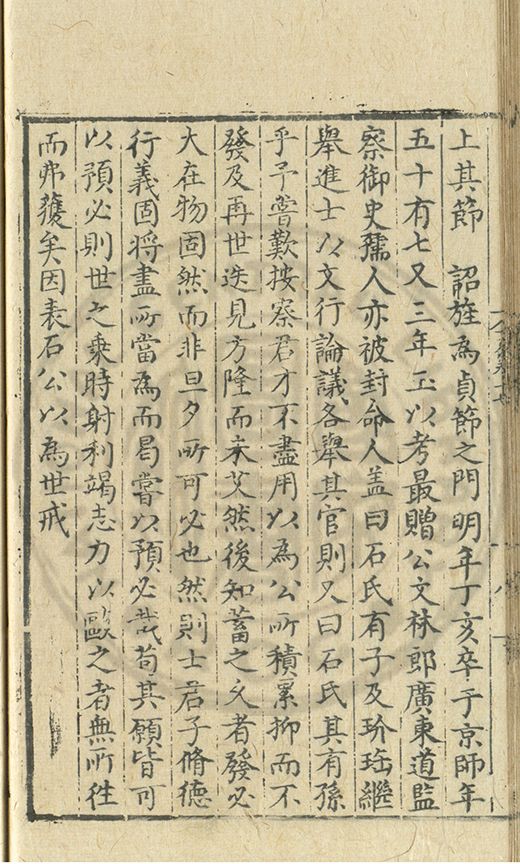 上其節　詔旌為貞節之門明年丁亥卒于京師年
五十有七又三年玉以考最贈公文林郎廣東道監
察御史孺人亦被封命人盖曰石氏有子及玠珤繼
舉進士以文行論議各舉其官則又曰石氏其有孫
乎予嘗歎按察君才不盡用以為公所積累抑而不
發及再世迭見方隆而未艾然後知蓄之久者發必
大在物固然而非旦夕所可必也然則士君子脩德
行義固將盡所當為而曷嘗以預必哉苟其願皆可
以預必則世之乗時射利竭志力以歐之者無所徃
而弗獲矣因表石公以為世戒